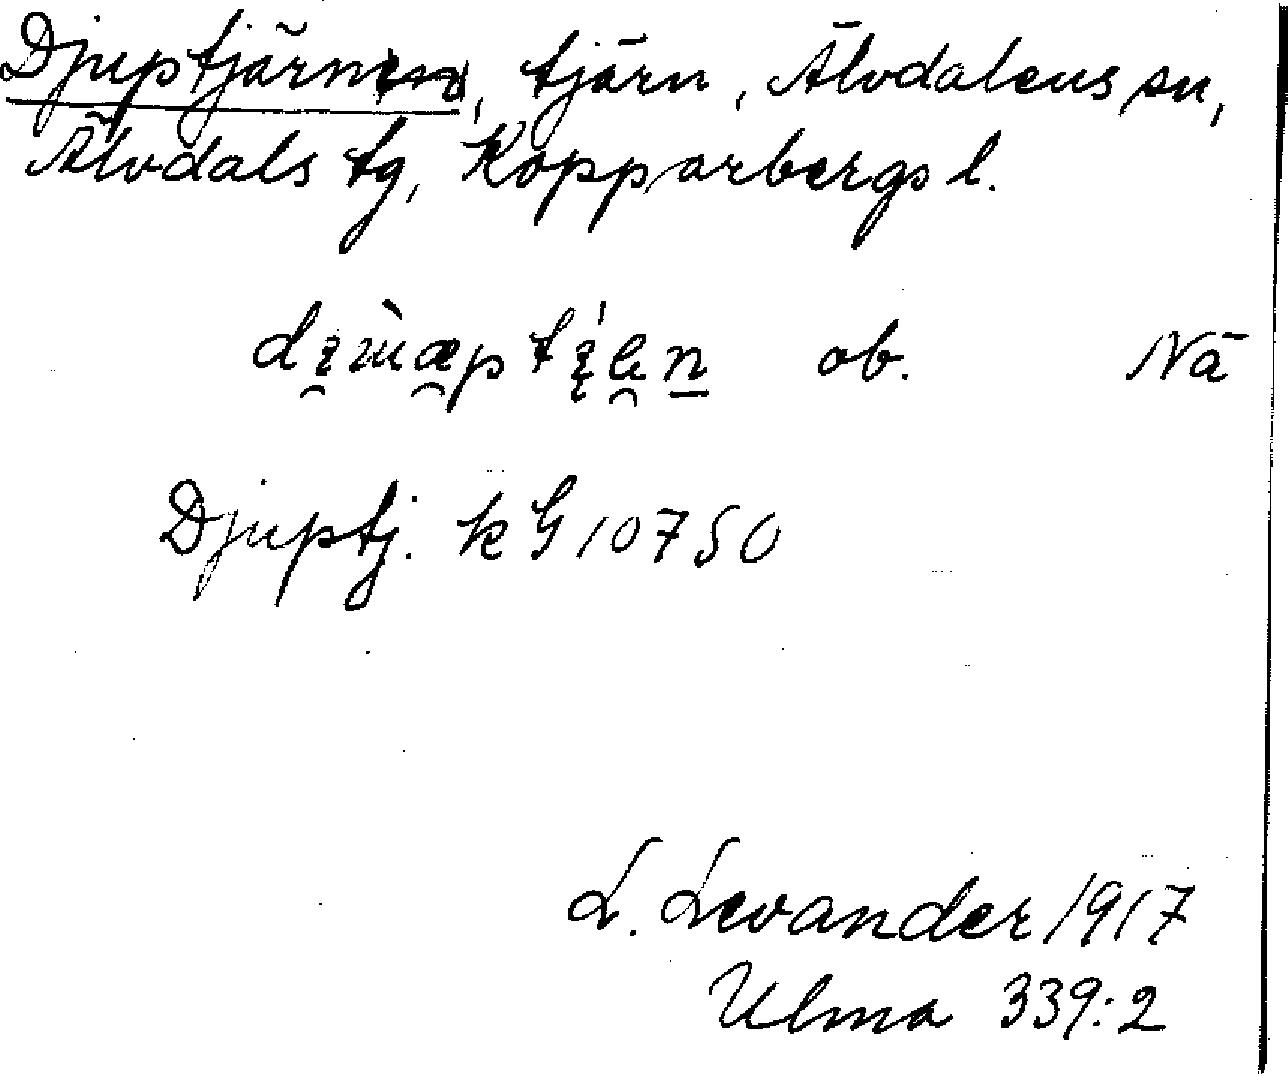 Djuptjärnen, tjärn, Älvdalens sn,
Älvdals tg, Kopparbergs l.
ob. Nä
Djuptj. kG 10750
L. Levander 1917
Ulma 339:2